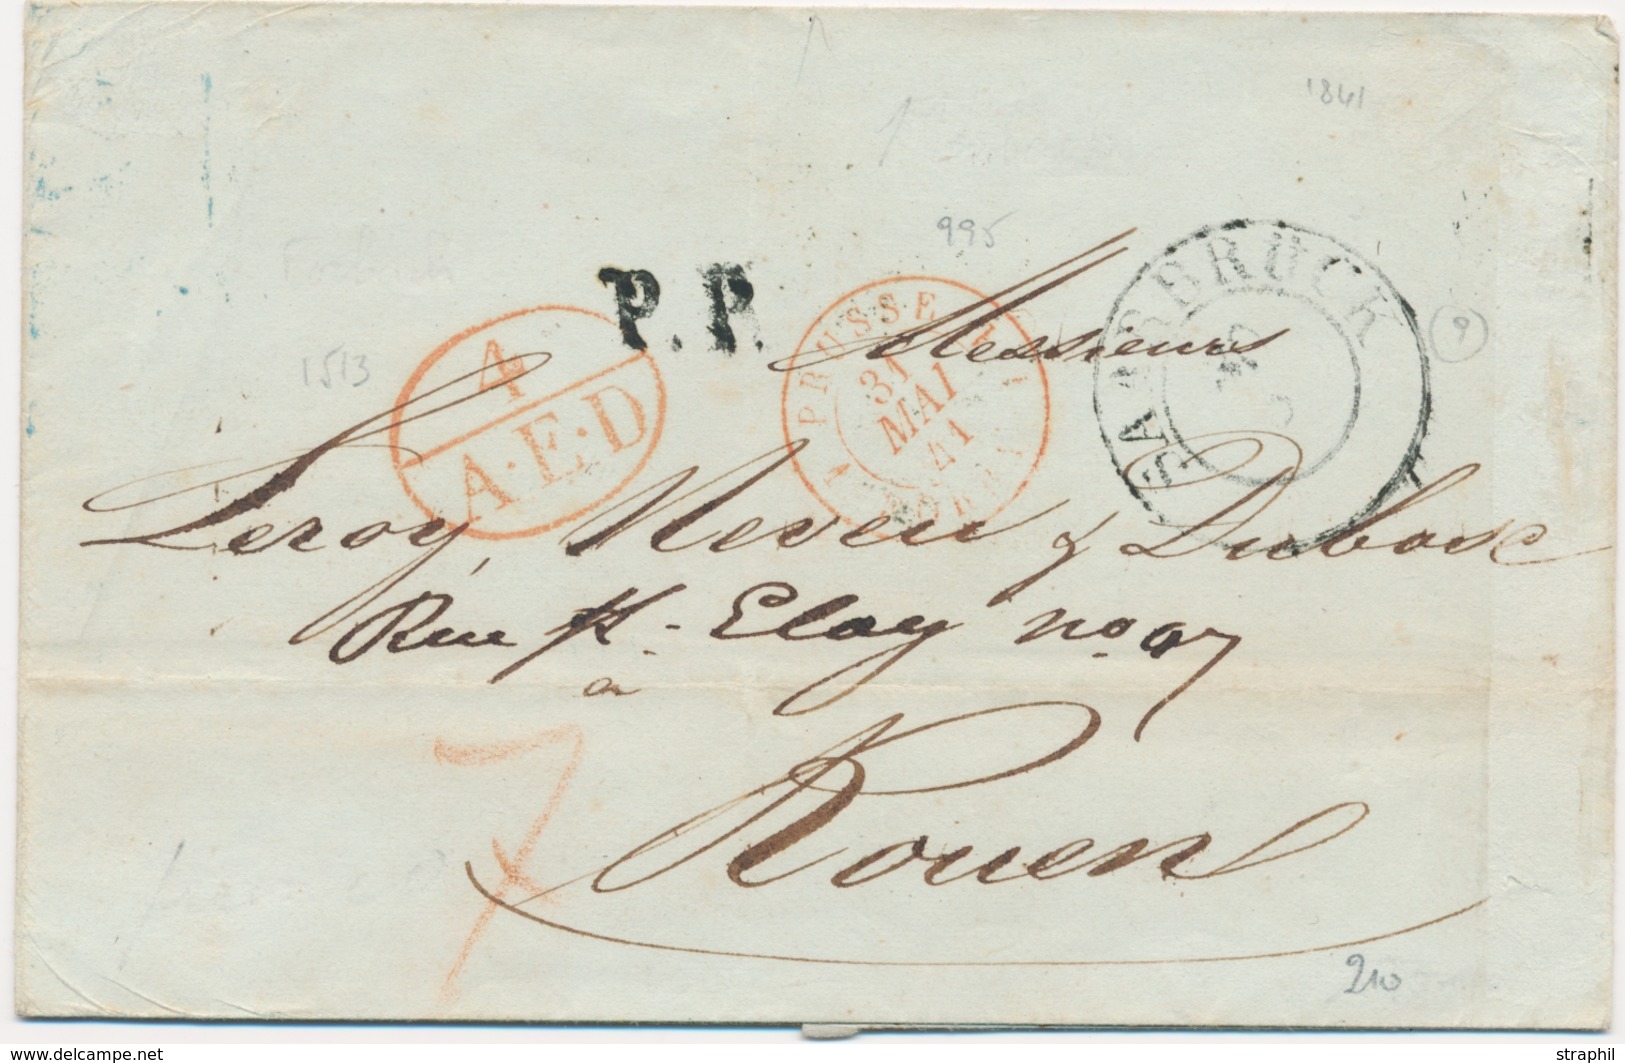 1841
995
P.P.
SAARBRÜCK
PRUSSE
31
MAI
41
FORBACH
9
Messieurs
1513
4
A.E.D
Leroy, Neveu & Dubosc
Rue St. Eloy no. 07
a
Rouen
7
210
www.delcampe.net
straphil